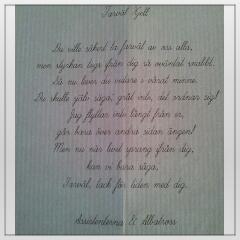 Farväl Kjell
Du ville säkert ta farväl av oss alla,
men styrkan togs från dig så oväntat snabbt.
Så nu lever du vidare i vårat minne.
Du skulle själv säga; gråt inte, det ordnar sig!
Jag flyttar inte långt från er,
går bara över andra sidan ängen!
Men nu när livet sprang ifrån dig,
kan vi bara säga,
Farväl, tack för tiden med dig.
Assistenterna & Albatross